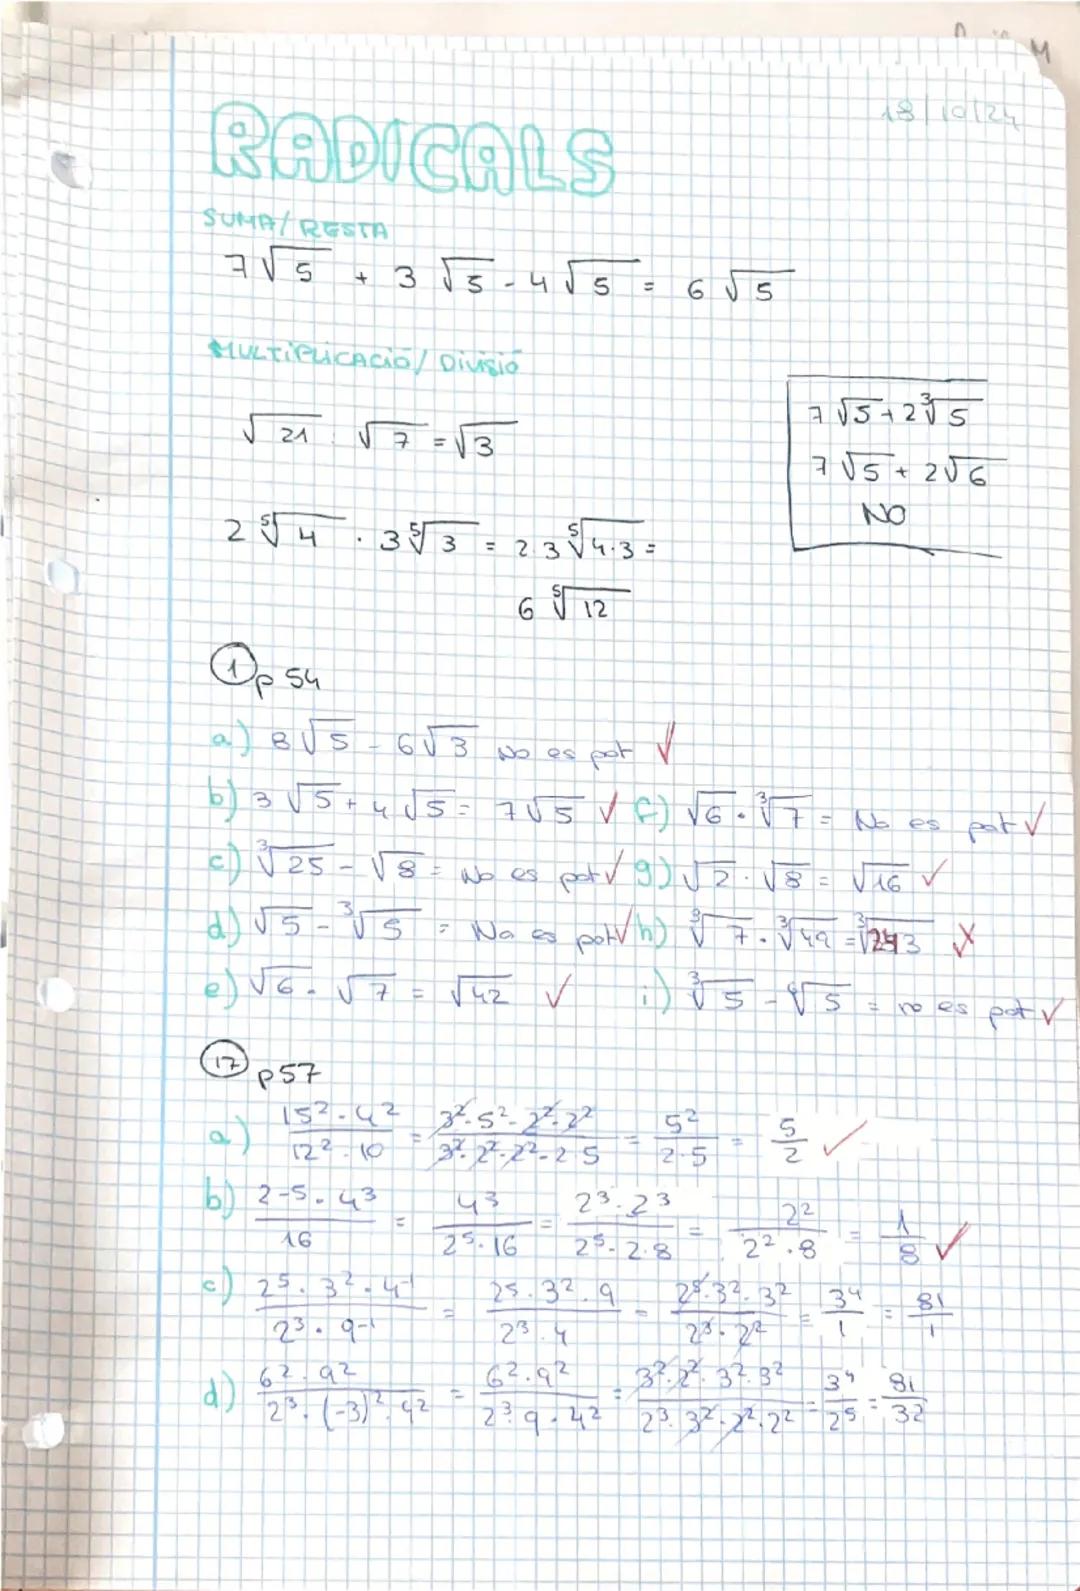 18/10/24
RADICALS
SUMA/RESTA
7√5 + 3√5 - 4√5 = 6√5
MULTIPLICACIÓ/DIVISIÓ
√21 : √7 = √3
7√5 + 2∛5
7√5 + 2√6
NO
2⁵√4 · 3⁵√3 = 2·3⁵√4·3 =
6⁵√12
① p 54
a) 8√5 - 6√3 No es pot ✓
b) 3√5 + 4√5 = 7√5 ✓
c) ∛25 - √8 = No es pot ✓
d) √5 - ∛5 = No es pot ✓
e) √6 · √7 = √42 ✓
f) √6 · ∛7 = No es pot ✓
g) √2 · √8 = √16 ✓
h) ∛7 · ∛49 = ∛243 ✗
i) ∛5 - √5 = no es pot ✓
⑰ p57
a) 15² · 4² / 12² · 10 = 3² · 5² · 2² · 2² / 3² · 2² · 2² · 2 · 5 = 5² / 2·5 = 5/2 ✓
b) 2-5 · 4³ / 16 = 4³ / 2⁵ · 16 = 2³ · 2³ / 2⁵ · 2 · 8 = 2² / 2² · 8 = 1/8 ✓
c) 2⁵ · 3² · 4-¹ / 2³ · 9-¹ = 2⁵ · 3² · 9 / 2³ · 4 = 2⁵ · 3² · 3² / 2³ · 2² = 3⁴/1 = 81/1
d) 6² · 9² / 2³ · (-3)² · 4² = 6² · 9² / 2³ · 9 · 4² = 3² · 2² · 3² · 3² / 2³ · 3² · 2² · 2² = 3⁴/2⁵ = 81/32